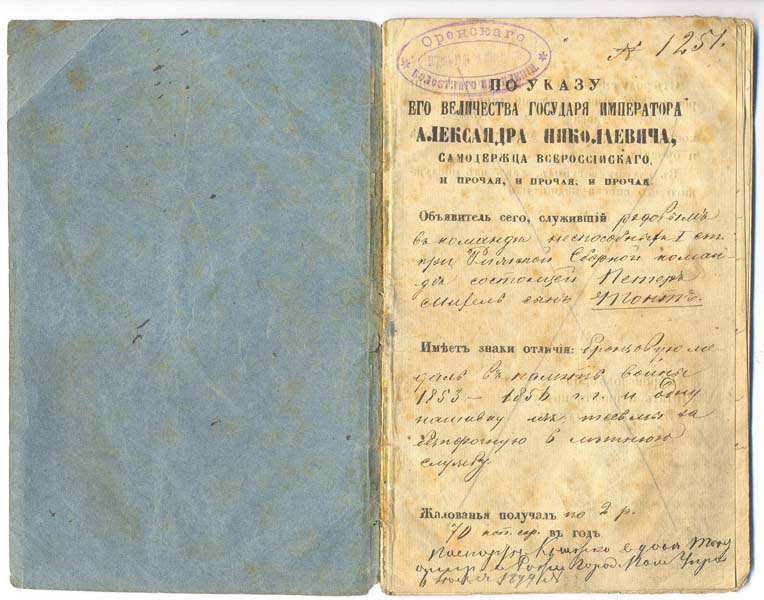 Оренскаго
волостнаго правленія
№ 1251.
ПО УКАЗУ
ЕГО ВЕЛИЧЕСТВА ГОСУДАРЯ ИМПЕРАТОРА
АЛЕКСАНДРА НИКОЛАЕВИЧА,
САМОДЕРЖЦА ВСЕРОССІЙСКАГО,
И ПРОЧАЯ, И ПРОЧАЯ, И ПРОЧАЯ.
Объявитель сего, служившій рядовымъ
въ командѣ неспособныхъ I ст.
при Сборной коман-
дѣ состоящей Петеръ
Михель сынъ Тонтъ.
Имѣетъ знаки отличія: бронзовую ме-
даль въ память войны
1853 – 1856 г. г. и одну
нашивку изъ тесьмы за
безпорочную 6 лѣтнюю
службу.
Жалованья получалъ по 2 р.
70 коп. сер. въ годъ